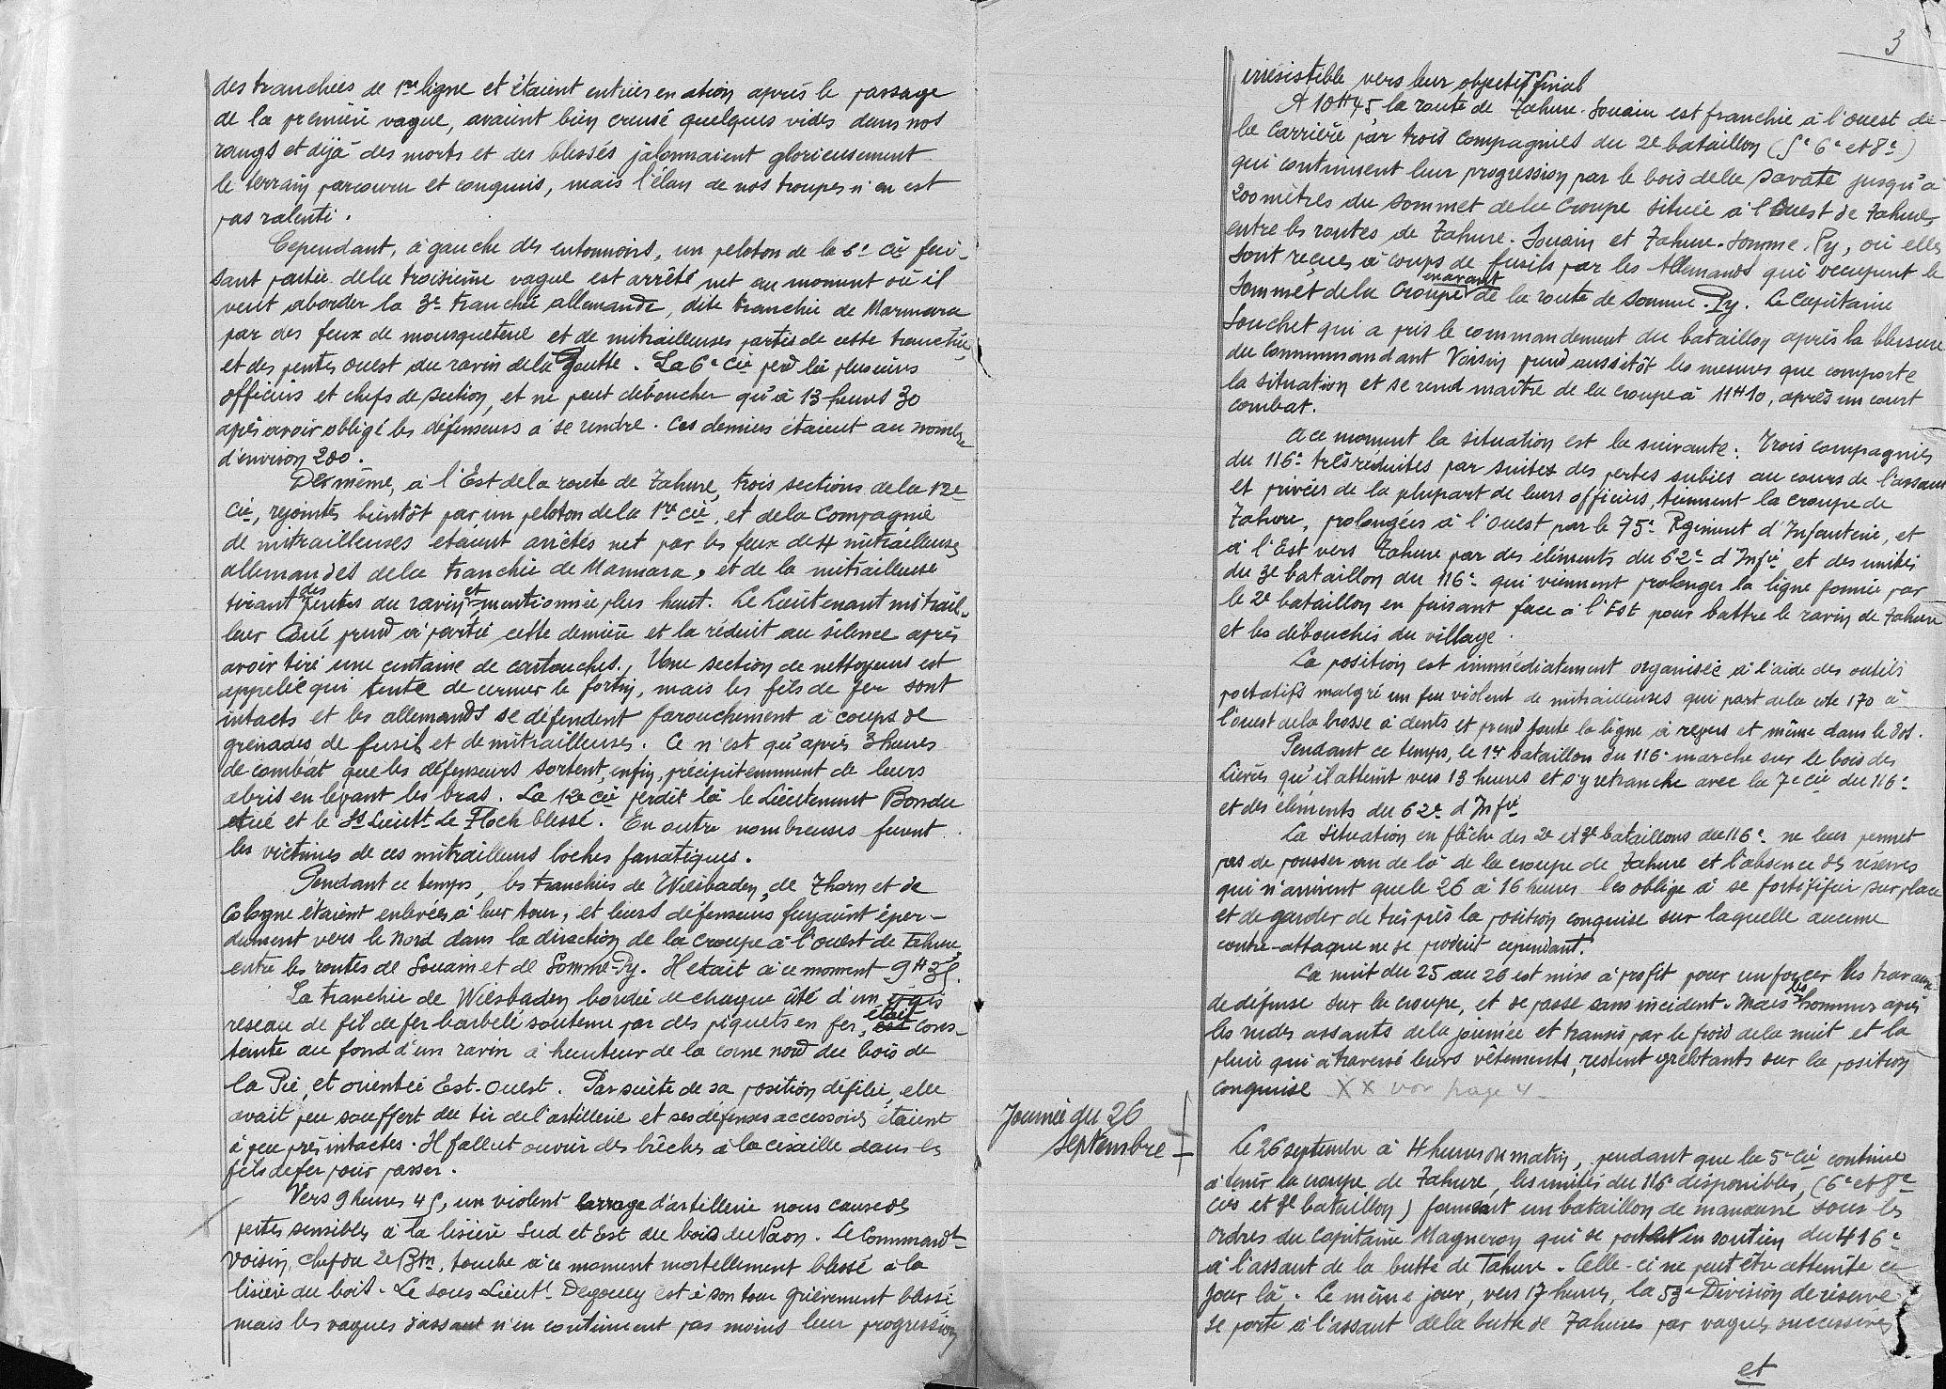 des tranchées de 1re ligne et étaient entrées en ation après le passage
de la première vague, avaient bien creusé quelques vides dans nos
rangs et déjà des morts et des blessés jalonnaient glorieusement
le terrain parcouru et conquis, mais l'élan de nos troupes n'en est
pas ralenti.
Cependant, à gauche des entonnoirs, un peloton de la 6e Cie fai-
sant partie de la troisième vague est arrêté net au moment où il
veut aborder la 3e tranchée allemande, dite tranchée de Marmara
par des feux de mousqueterie et de mitrailleuses partis de cette tranchée
et des pentes ouest du ravin de la Goutte. La 6e Cie perd là plusieurs
officiers et chefs de section, et ne peut déboucher qu'à 13 heures 30
après avoir obligé les défenseurs à se rendre. Ces derniers étaient au nombre
d'environ 200.
De même, à l'Est de la route de Tahure, trois sections de la 12e
Cie, rejointes bientôt par un peloton de la 1re Cie, et de la Compagnie
de mitrailleuses étaient arrêtés net par les feux de 4 mitrailleuses
allemandes de la tranchée de Marmara, et de la mitrailleuse
tirant des pentes du ravin et mentionnée plus haut. Le Lieutenant mitrail-
leur prend à partie cette dernière et la réduit au silence après
avoir tiré une centaine de cartouches. Une section de nettoyeurs est
appelée qui tente de cerner le fortin, mais les fils de fer sont
intacts et les allemands se défendent farouchement à coups de
grenades de fusils et de mitrailleuses. Ce n'est qu'après 3 heures
de combat que les défenseurs sortent enfin, précipitemment de leurs
abris en levant les bras. La 12e Cie perdit là le Lieutenant Bondu
tué et le Ss Lieutt Le Floch blessé. En outre nombreuses furent
les victimes de ces mitrailleurs boches fanatiques.
Pendant ce temps, les tranchées de Wiesbaden, de Thorn et de
Cologne étaient enlevées à leur tour, et leurs défenseurs fuyaient éper-
dument vers le Nord dans la direction de la croupe à l'ouest de Tahure,
entre les routes de Souain et de Somme-Py. Il était à ce moment 9H35.
La tranchée de Wiesbaden bordée de chaque côté d'un épais
réseau de fil de fer barbelé soutenu par des piquets en fer, était est cons-
truite au fond d'un ravin à hauteur de la corne nord du bois de
la Pie, et orientée Est-Ouest. Par suite de sa position défilée, elle
avait peu souffert du tir de l'artillerie et ses défenses accessoires étaient
à peu près intactes. Il fallut ouvrir des brèches à la cisaille dans les
fils de fer pour passer.
Vers 9 heures 45, un violent barrage d'artillerie nous cause des
pertes sensibles à la lisière Sud et Est du bois du Paon. Le Commandt
Voisin, chef du 2e Btn, tombe à ce moment mortellement blessé à la
lisière du bois. Le sous Lieutt Degouey est à son tour grièvement blessé
mais les vagues d'assaut n'en continuent pas moins leur progression
3
irrésistible vers leur objectif final
A 10H45 la route de Tahure-Souain est franchie à l'ouest de
la Carrière par trois compagnies du 2e bataillon (5e 6e et 8e)
qui continuent leur progression par le bois de la Savate jusqu'à
200 mètres du sommet de la Croupe située à l'Ouest de Tahure,
entre les routes de Tahure-Souain et Tahure-Somme-Py, où elles
sont reçues à coups de fusils par les Allemands qui occupent le
sommet de la Croupe en avant de la route de Somme-Py. Le Capitaine
Souchet qui a pris le commandement du bataillon après la blessure
du commandant Voisin prend aussitôt les mesures que comporte
la situation et se rend maître de la croupe à 11H10, après un court
combat.
A ce moment la situation est la suivante: Trois compagnies
du 116e très réduites par suites des pertes subies au cours de l'assaut
et privées de la plupart de leurs officiers, tiennent la croupe de
Tahure, prolongées à l'ouest par le 75e Régiment d'Infanterie, et
à l'Est vers Tahure par des éléments du 62e d'Infie et des unités
du 3e bataillon du 116e qui viennent prolonger la ligne formée par
le 2e bataillon en faisant face à l'Est pour battre le ravin de Tahure
et les débouchés du village.
La position est immédiatement organisée à l'aide des outils
portatifs malgré un feu violent de mitrailleuses qui part de la cote 170 à
l'ouest de la brosse à dents et prend toute la ligne à revers et même dans le dos.
Pendant ce temps, le 1er bataillon du 116e marche sur le bois des
Lièvres qu'il atteint vers 13 heures et s'y retranche avec la 7e Cie du 116e
et des éléments du 62e d'Infie
La situation en flèche des 2e et 3e bataillons du 116e ne leur permet
pas de pousser au de là de la croupe de Tahure et l'absence des réserves
qui n'arrivent que le 26 à 16 heures les oblige à se fortifier sur place
et de garder de très près la position conquise sur laquelle aucune
contre-attaque ne se produit cependant.
La nuit du 25 au 26 est mise à profit pour renforcer les travaux
de défense sur la croupe, et se passe sans incident. Mais les hommes après
les rudes assauts de la journée et transis par le froid de la nuit et la
pluie qui a traversé leurs vêtements, restent grelotants sur la position
conquise XX voir page 4
Journée du 26
septembre
Le 26 septembre à 4 heures du matin, pendant que la 5e Cie continue
à tenir la croupe de Tahure, les unités du 116e disponibles, (6e et 8e
cies et 3e bataillon) formant un bataillon de manœuvre sous les
ordres du Capitaine Magneron qui se portent en soutien du 416e
à l'assaut de la butte de Tahure. Celle-ci ne peut être atteinte ce
jour là. Le même jour, vers 17 heures, la 53e Division de réserve
se porte à l'assaut de la butte de Tahure par vagues successives
et